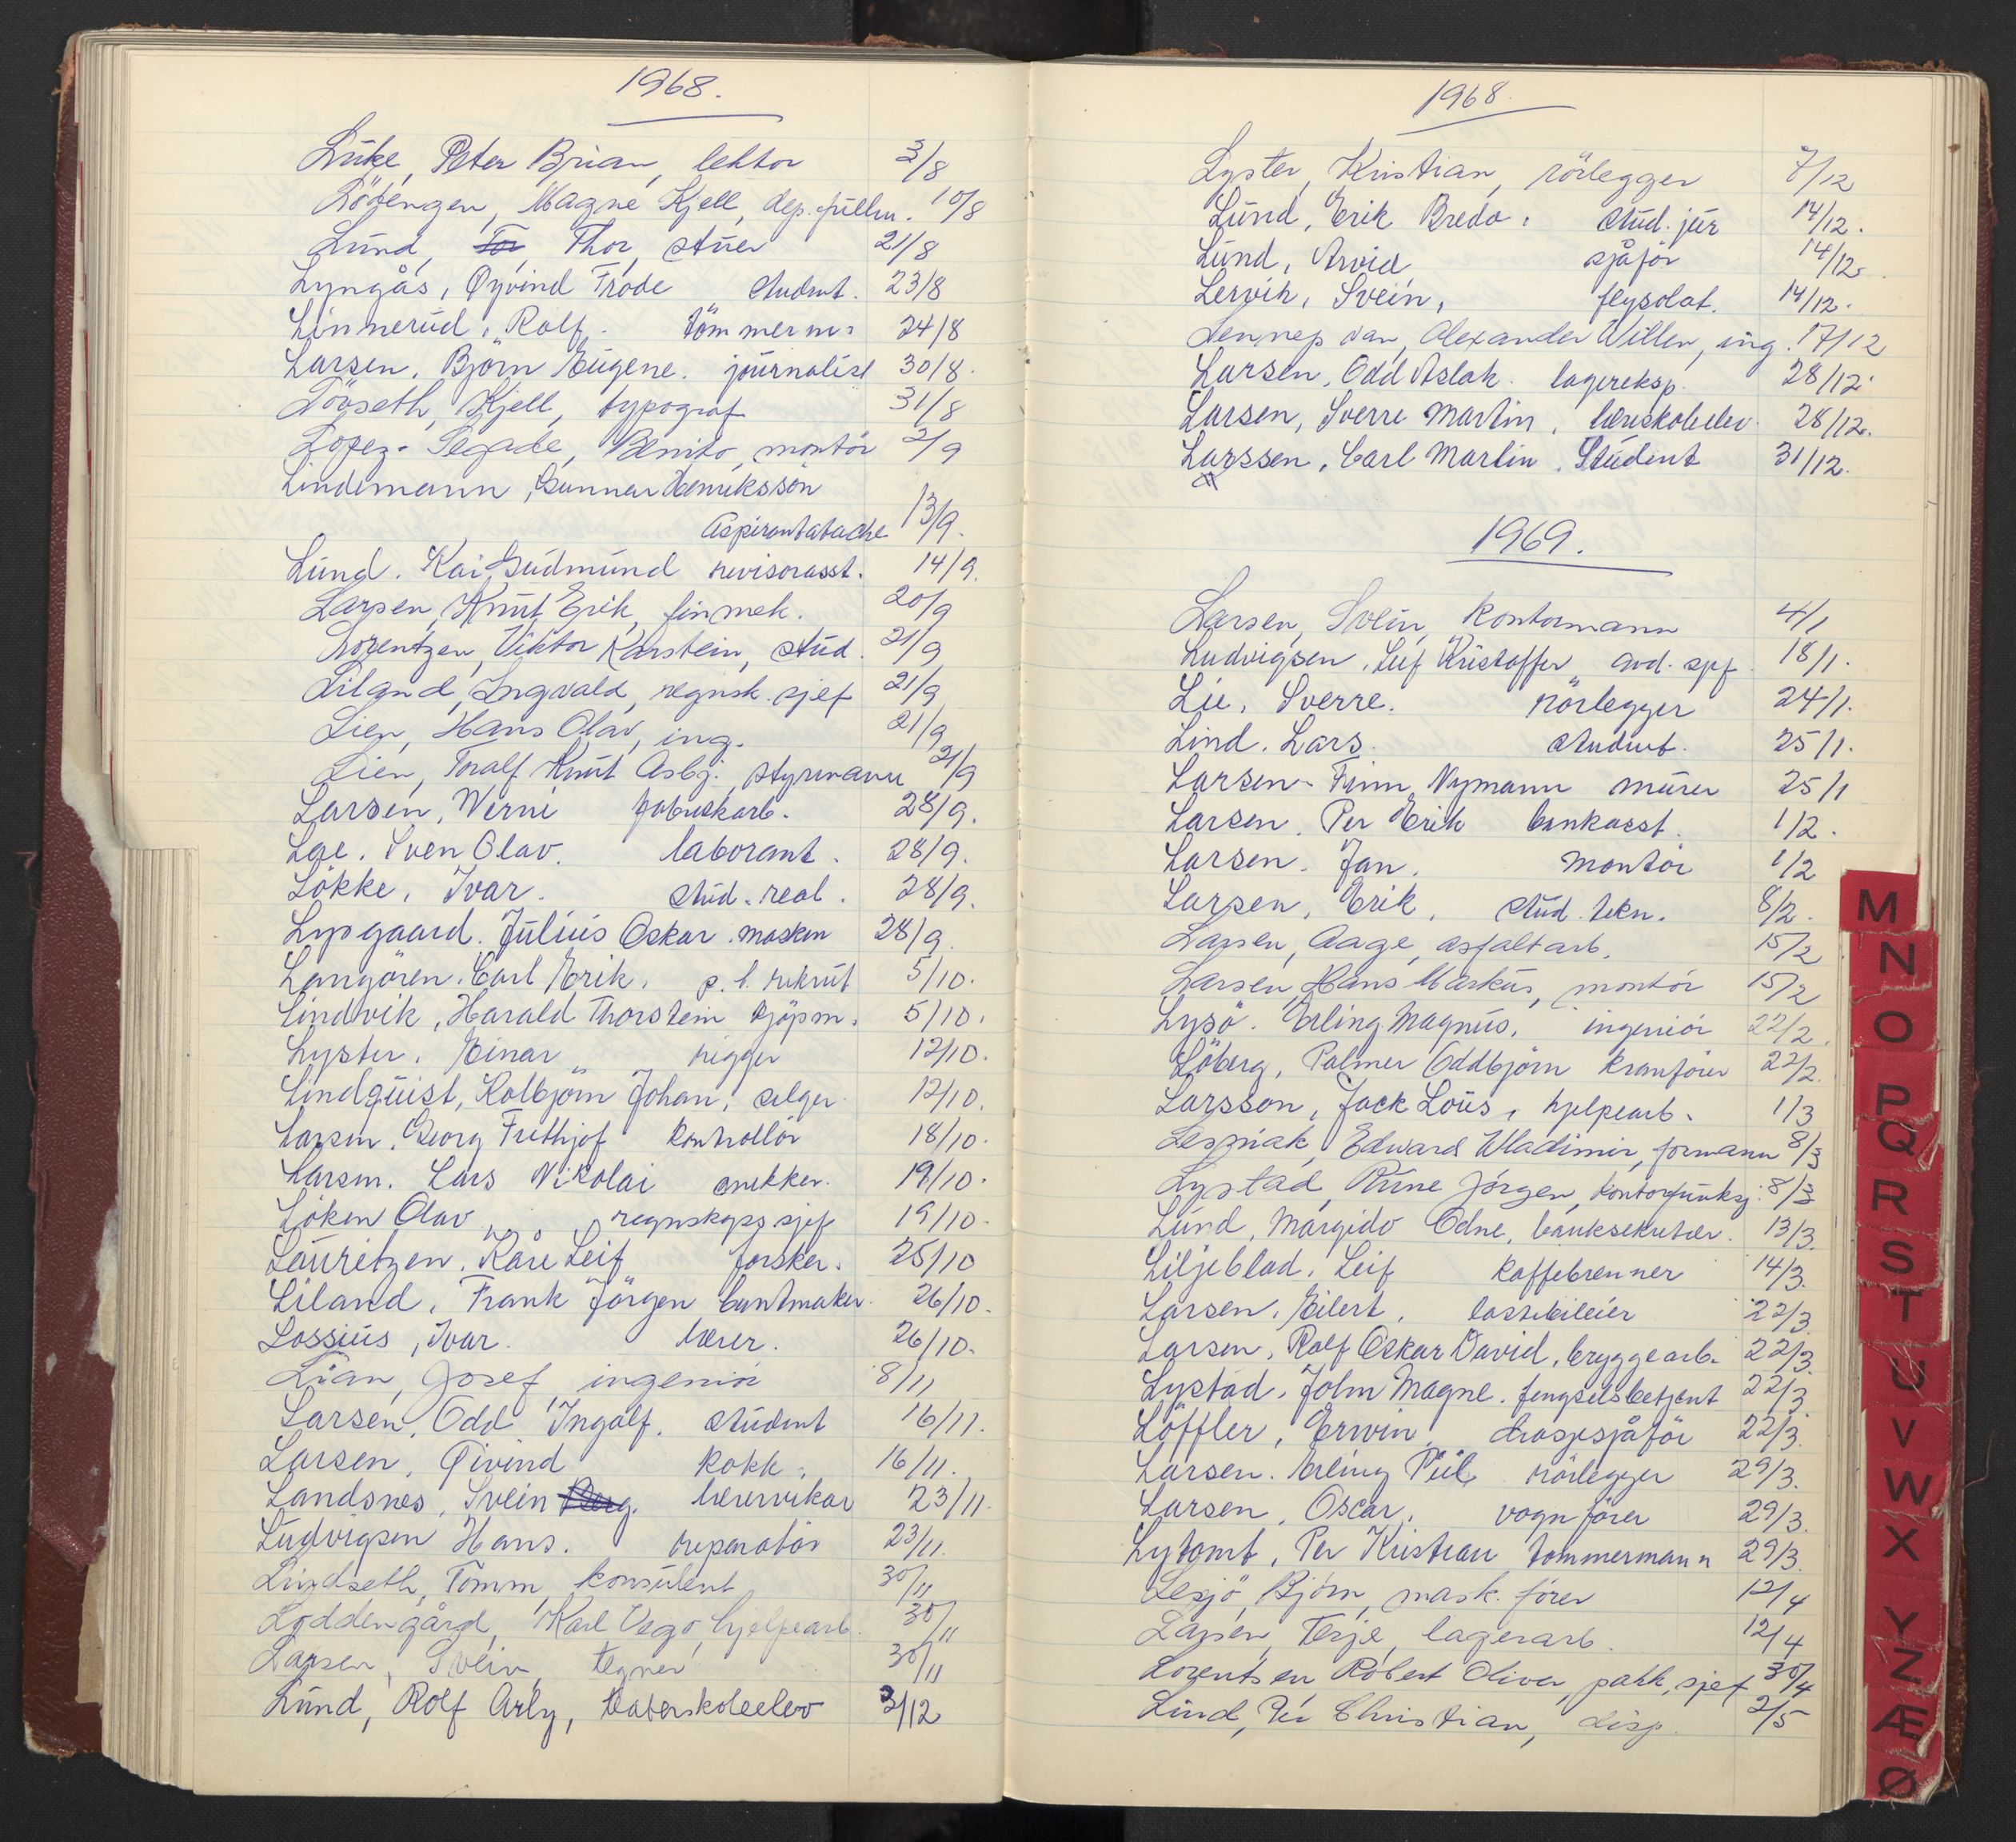 1968.
Luke, Peter Brian, lektor 3/8
Lövengen, Magne Kjell, dep. fullm. 10/8
Lund, Tor Thor, stuer 21/8
Lyngås, Øyvind Frode student. 23/8
Linnerud, Rolf. tömmerm. 24/8
Larsen, Björn Eugene. journalist 30/8.
Lövseth, Kjell, typograf 31/8
Lopez-Segade, Benito, montör 2/9
Lindemann, Gunnar Henriksson
Aspirantatache 13/9.
Lund. Kai Gudmund revisorasst. 14/9.
Larsen, Knut Erik, finmek. 20/9
Lorentzen, Viktor Karstein, stud. 21/9
Liland, Ingvald, regnsk. sjef 21/9
Lien, Hans Olav, ing. 21/9
Lien, Toralf Knut Asbj. styrmann 21/9
Larsen, Werni fabrikkarb. 28/9.
Lae. Sven Olav. laborant. 28/9.
Lökke, Ivar. stud. real. 28/9.
Lysgaard. Julius Oskar. maskm 28/9.
Langören. Carl Erik. p.l. rekrut 5/10.
Lindvik, Harald Thorstein kjöpm. 5/10.
Lyster, Einar rigger 12/10.
Lindquist, Kolbjörn Johan, selger 12/10.
Larsen, Georg Frithjof kontrollör 18/10.
Larsen. Lars Nikolai snekker. 19/10.
Löken Olav regnskapssjef 19/10.
Lauritzen. Kåre Leif forsker. 25/10
Liland, Frank Jörgen buntmaker. 26/10.
Lossius, Ivar. lærer. 26/10.
Lian, Josef, ingeniör 8/11
Larsen, Odd Ingolf. student 16/11.
Larsen, Øivind kokk. 16/11.
Landsnes, Svein Berg. lærervikar 23/11.
Ludvigsen Hans. reparatör 23/11.
Lindseth, Tomm, konsulent 30/11
Loddengård, Karl Vego, hjelpearb. 30/11
Larsen, Svein, tegner 30/11
Lund, Rolf Arly, teaterskoleelev 3/12
1968.
Lyster, Kristian, rörlegger 7/12
Lund, Erik Bredo. stud. jur 14/12.
Lund, Arvid sjåför 14/12.
Lervik, Svein, flysoldat. 14/12.
Lennep van, Alexander Willem, ing. 17/12
Larsen, Odd Aslak. lagereksp. 28/12.
Larsen, Sverre Martin, lærerskoleelev 28/12.
Larssen, Carl Martin. Student 31/12.
1969.
Larsen, Svein, kontormann 4/1
Ludvigsen, Leif Kristoffer avd. sjef 18/1.
Lie, Sverre. rörlegger 24/1.
Lind. Lars. student. 25/1.
Larsen-Finn Nymann murer 25/1
Larsen. Per Erik bankasst. 1/2.
Larsen. Jan. montör 1/2
Larsen, Erik. stud. tekn. 8/2.
Larsen, Aage, asfaltarb. 15/2
Larsen, Hans Markus, montör 15/2
Lysö. Erling Magnus. ingeniör 22/2.
Löberg, Palmer Oddbjörn kranförer 22/2.
Larsson, Jack Lous, hjelpearb. 1/3
Lesniak, Edward Wladimir, formann 8/3
Lystad, Rune Jörgen, kontorfunksj. 8/3
Lund, Margido Edne, banksekretær. 13/3.
Liljeblad, Leif kaffebrenner 14/3.
Larsen, Eilert. lastebileier 22/3.
Larsen, Rolf Oskar David, bryggearb. 22/3.
Lystad, John Magne. fengselsbetjent 22/3.
Löffler, Erwin drosjesjåför 22/3.
Larsen. Erling Piil rörlegger 29/3.
Larsen, Oscar. vognförer 29/3.
Lytomt, Per Kristian tømmermann 29/3.
Lesjö, Björn, mask. förer 12/4
Larsen, Terje, lagerarb. 12/4
Lorentsen Robert Oliver, pakk. sjef 30/4
Lind, Per Christian, disp. 2/5
M
N
O
P
Q
R
S
T
U
V
W
X
Y
Z
Æ
Ø